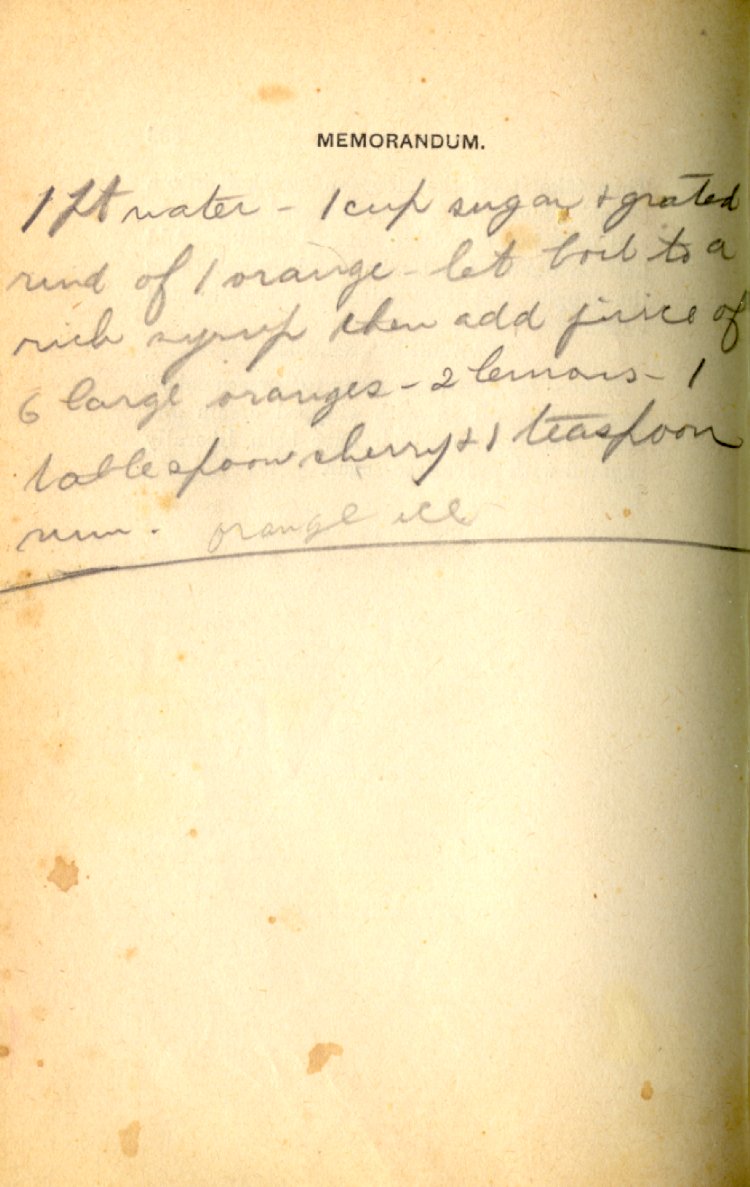 MEMORANDUM.
1 pt water - 1 cup sugar & grated
rind of 1 orange - let boil to a
rich syrup then add juice of
6 large oranges - 2 lemons - 1
tablespoon sherry & 1 teaspoon
rum. orange ice